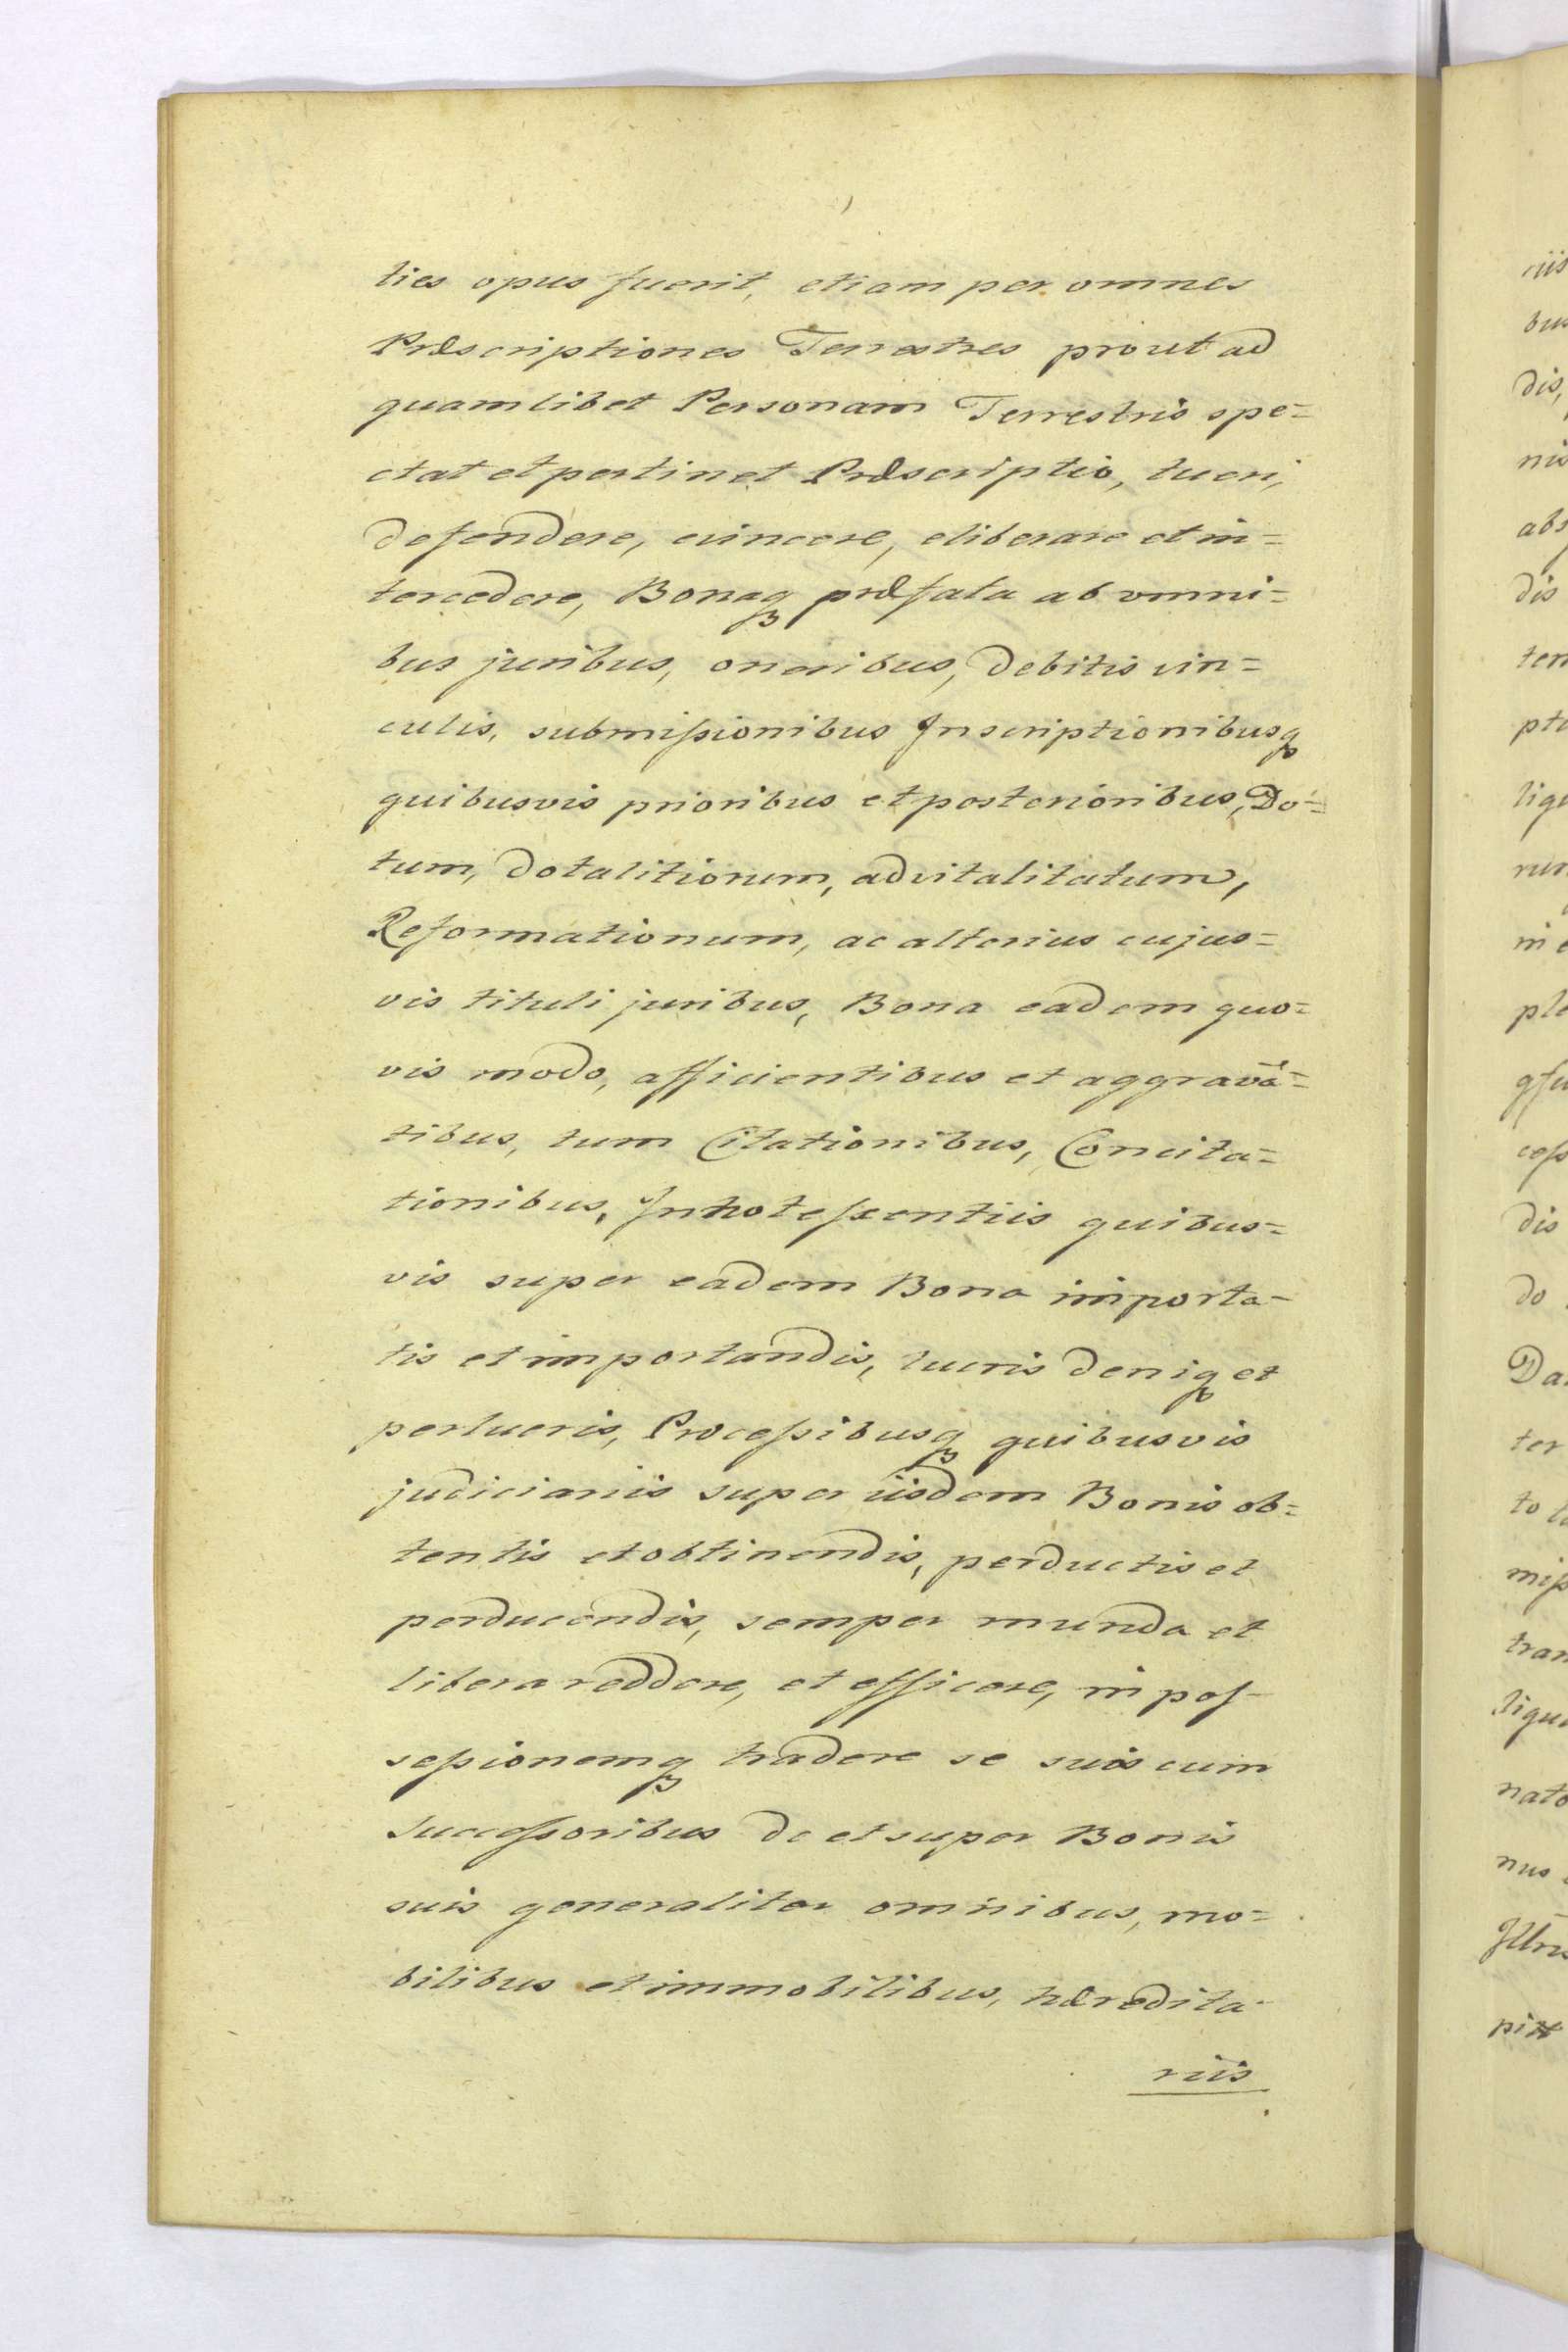 ties opus fuerit, etiam per omnes
Præscriptiones Terrestres prout ad
quamlibet Personam Terrestris spe=
ctat et pertinet Præscriptio, tueri,
defendere, evincere, eliberare et in=
tercedere, Bonaqꝫ præfata ab omni=
bus juribus, oneribus, debitis vin=
culis, submissionibus Inscriptionibusqꝫ
quibusvis prioribus et posterioribus, Do=
tum, dotalitiorum, advitalitatum,
Reformationum, ac alterius cujus=
vis tituli juribus, Bona eadem quo=
vis modo, afficientibus et aggravā=
tibus, tum Citationibus, Concita=
tionibus, Innotescentiis quibus=
vis super eadem Bona importa=
tis et importandis, lucris deniqꝫ et
perlucris, Processibusqꝫ quibusvis
judiciariis super iisdem Bonis ob=
tentis et obtinendis, perductis et
perducendis, semper munda et
libera reddere, et efficere, in pos-
sessionemqꝫ tradere se suis cum
successoribus de et super Bonis
suis generaliter omnibus, mo=
bilibus et immobilibus, hæredita-
riis
riis
bus
dis,
nis
abs
dis
ten
pti
ligu
rum
in e
ple
qfu
cess
dis
do
Da
ter
to
miss
tran
ligu
nato
nus
Illris